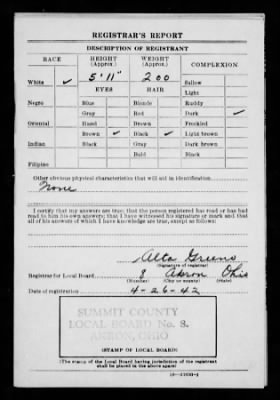 REGISTRAR'S REPORT
DESCRIPTION OF REGISTRANT
RACE HEIGHT (Approx.) WEIGHT (Approx.) COMPLEXION
White ✓ 5'11" 200 Sallow
EYES HAIR Light
Negro Blue Blonde Ruddy
Gray Red Dark ✓
Oriental Hazel Brown Freckled
Brown ✓ Black ✓ Light brown
Indian Black Gray Dark brown
Bald Black
Filipino
Other obvious physical characteristics that will aid in identification
None
I certify that my answers are true; that the person registered has read or has had
read to him his own answers; that I have witnessed his signature or mark and that
all of his answers of which I have knowledge are true, except as follows:
Alta Greene
(Signature of registrar)
Registrar for Local Board 8 Akron Ohio
(Number) (City or county) (State)
Date of registration 4-26-42
SUMMIT COUNTY
LOCAL BOARD No. 8.
AKRON, OHIO
(STAMP OF LOCAL BOARD)
(The stamp of the Local Board having jurisdiction of the registrant
shall be placed in the above space)